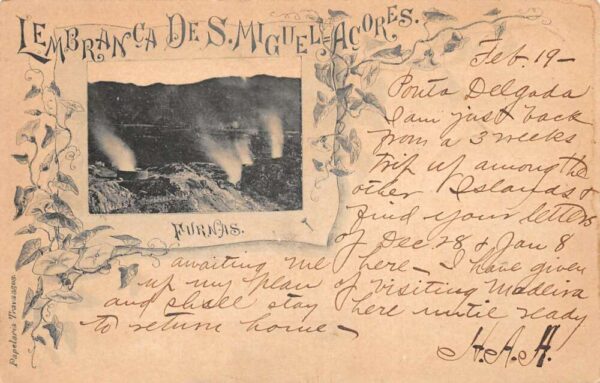 LEMBRANÇA DE S. MIGUEL=AÇORES.
Feb. 19—
Ponta Delgada
I am just back
from a 3 weeks
trip up among the
other Islands &
find your letters
of Dec 28 & Jan 8
awaiting me here — I have given
up my plan of visiting Madeira
and shall stay here until ready
to return home —
H.A.H.
FURNAS.
Papelaria Travassos.